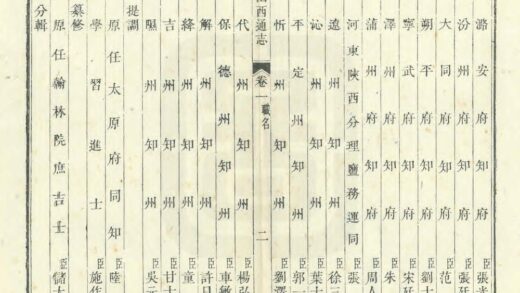 潞安府知府臣張
汾州府知府臣張廷
大同府知府臣范
朔平府知府臣劉士
寧武府知府臣宋廷
澤州府知府臣朱
蒲州府知府臣周人
河東陝西分理鹽務運同臣張
遼州知州臣徐三
沁州知州臣葉士
平定州知州臣郭一
忻州知州臣劉
西通志 卷一 職名 二
代州知州臣楊弘
保德州知州臣車敏
解州知州臣許日
絳州知州臣童
吉州知州臣甘士
隰州知州臣吳元
提調
原任太原府同知臣陸
學習進士臣施
纂修
原任翰林院庶吉士臣儲大
分輯